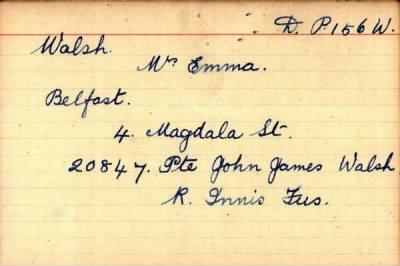 D. P.156 W.
Walsh.
Mrs Emma.
Belfast.
4. Magdala St.
20847. Pte John James Walsh
R. Innis Fus.